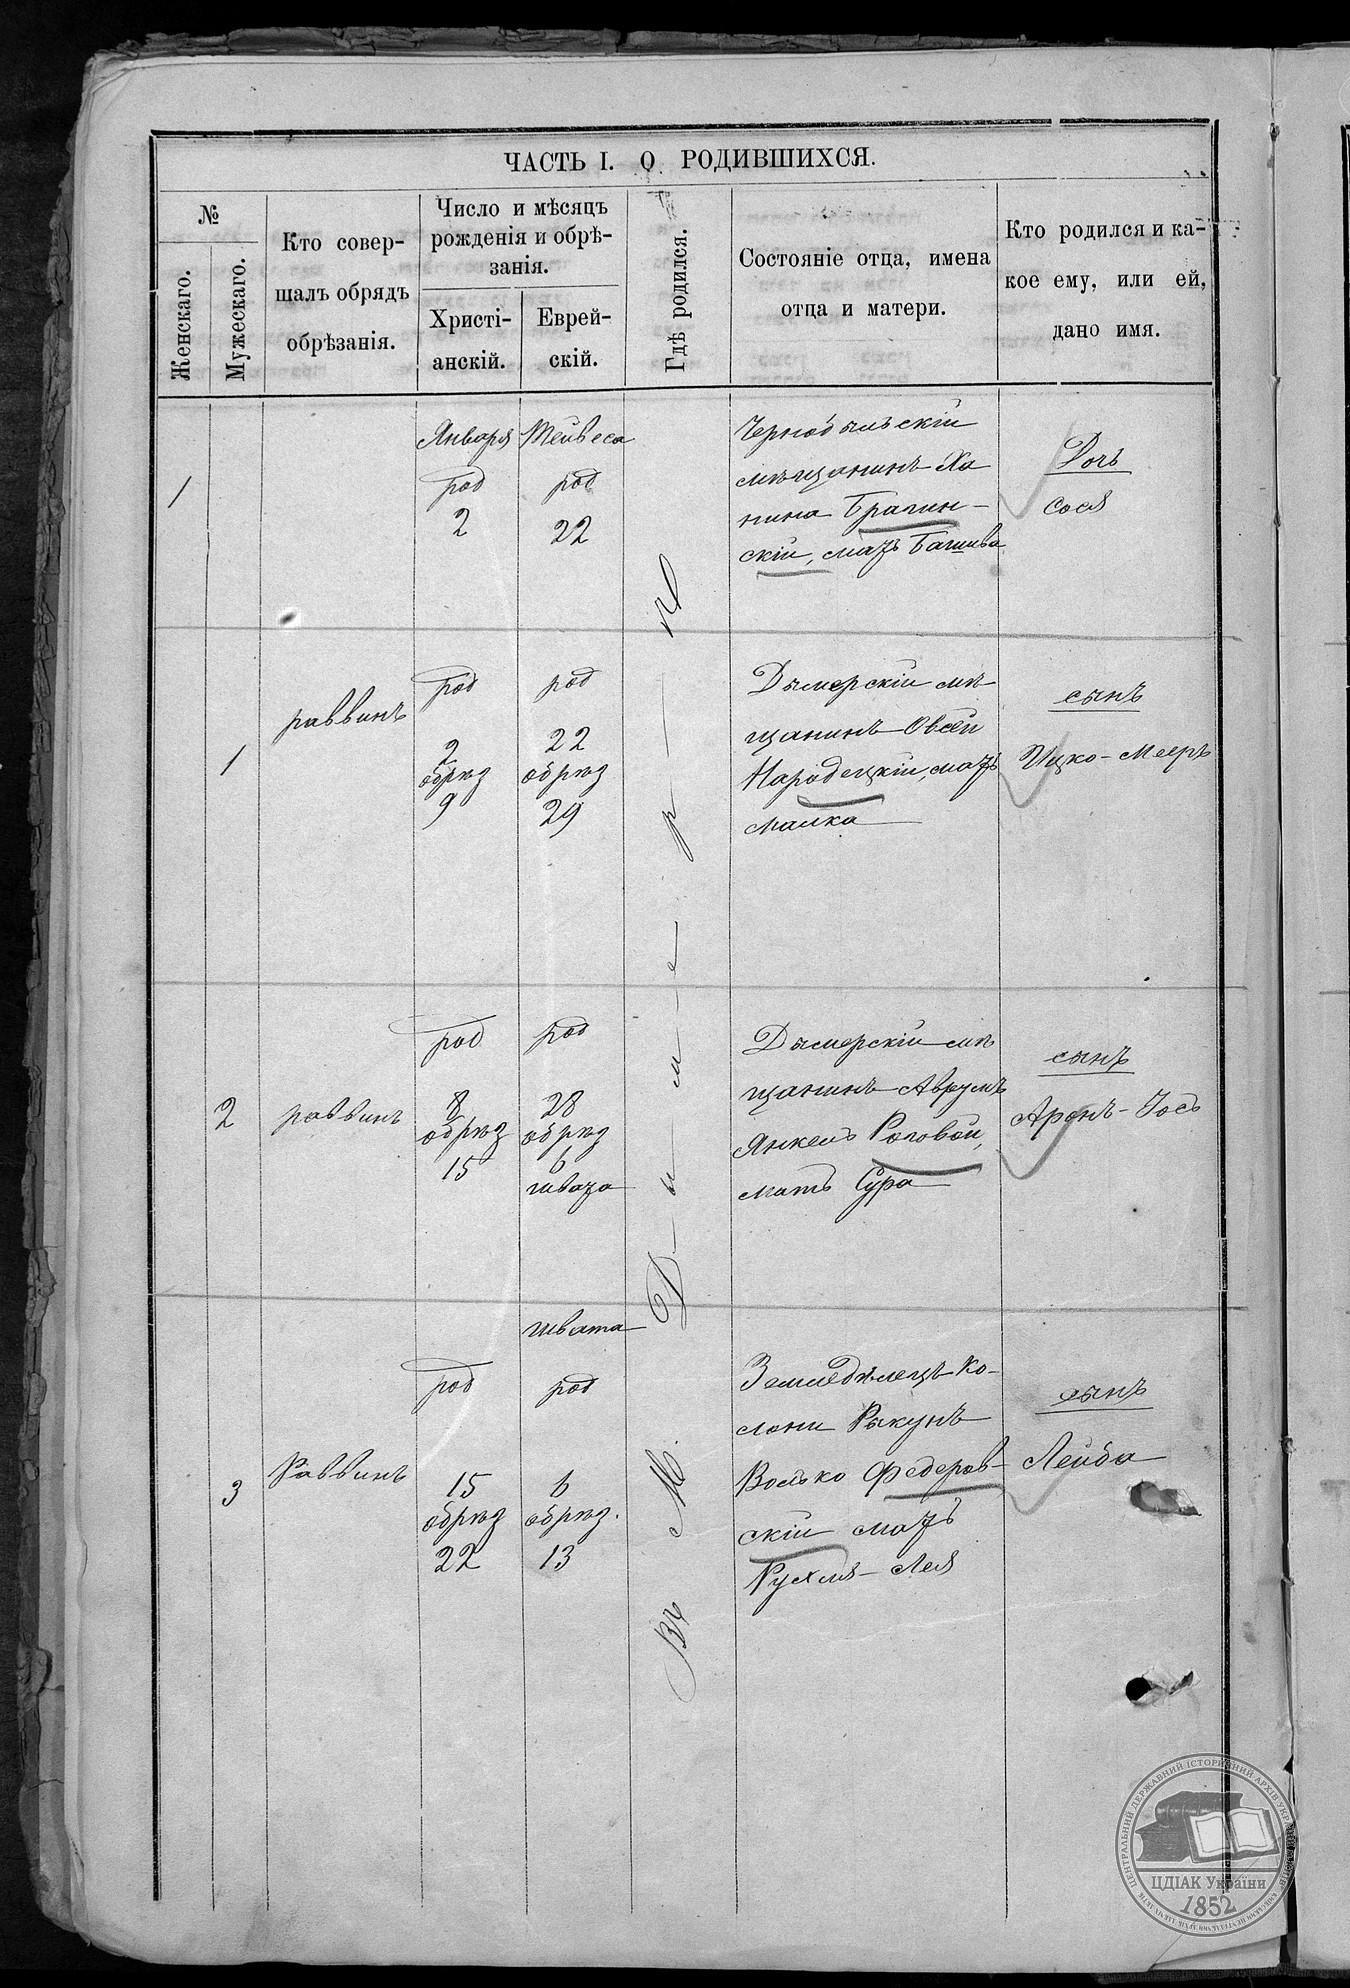 ЧАСТЬ I. О РОДИВШИХСЯ.
№
Женскаго.
Мужескаго.
Кто совер-
шалъ обрядъ
обрѣзанія.
Число и мѣсяцъ
рожденія и обрѣ-
занія.
Христі-
анскій.
Еврей-
скій.
Гдѣ родился.
Состояніе отца, имена
отца и матери.
Кто родился и ка-
кое ему, или ей,
дано имя.
Въ М. Дымере
1
Января
род
2
Тейвеса
род
22
Чернобыльскій
мѣщанинъ Ха
нина Брагин-
скій, мать Башива
Дочь
Сося
1
раввинъ
род
2
обрѣз
9
род
22
обрѣз
29
Дымерскій мѣ
щанинъ Овсей
Народецкій, мать
Малка
сынъ
Ицко-Мееръ
2
раввинъ
род
8
обрѣз
15
род
28
обрѣз
6
швата
Дымерскій мѣ
щанинъ Аврумъ
Янкель Роговой,
мать Сура
сынъ
Аронъ-Іось
3
Раввинъ
род
15
обрѣз
22
швата
род
6
обрѣз.
13
Земледѣлецъ ко-
лони Рыкунъ
Волько Федеров-
скій мать
Рухля-Лея
сынъ
Лейба
ЦЕНТРАЛЬНИЙ ДЕРЖАВНИЙ ІСТОРИЧНИЙ АРХІВ УКРАЇНИ
ЦДІАК України
1852